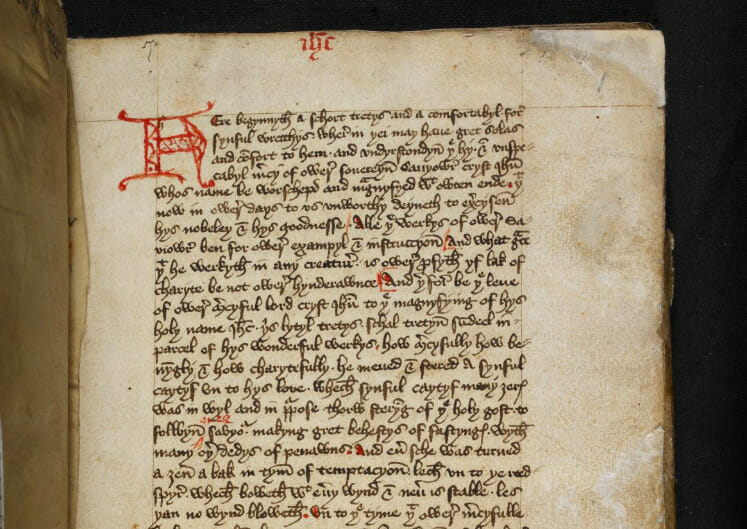 ihc
Here begynnyth a schort tretys and a comfortabyl for
synful wrecchys wher in þei may haue gret solas
and cōfort to hem · and vndyrstondyn þe hy · & vnspe-
cabyl mcy of ower souereyn Sauyowr cryst Ihū
whos name be worschepd and magnyfyed wt owten ende · þt
now in ower days to vs vnworthy deyneth to exercysen
hys nobeley & hys goodnesse · Alle þe werkys of ower Sa-
viowr ben for ower exampyl & instruccyon And what gce
þt he werkyth in any creatur · is ower pfyth yf lak of
charyte be not ower hynderawnce And þerfor be þe leue
of ower mcyful lord cryst Ihū to þe magnyfying of hys
holy name Ihc · þis lytyl tretys schal tretyn sumdeel in
parcel of hys wonderful werkys · how mcyfully how be-
nyngly & how charytefully · he meued & stered a synful
caytyf vn to hys loue · whech synful caytyf many ȝerys
was in wyl and in ppose · thorw steryng of þe holy gost · to
folwyn ower savyor · makyng gret behestys of fastyngys · wyth
many oþer dedys of penawns · And euer sche was turned
a ȝen a bak in tyme of temptacyon · lech vn to þe red
spyr · whech boweth wt euery wynd & neuer is stable · les
þan no wynd bloweth · Vn to þe tyme þt ower mcyfulle